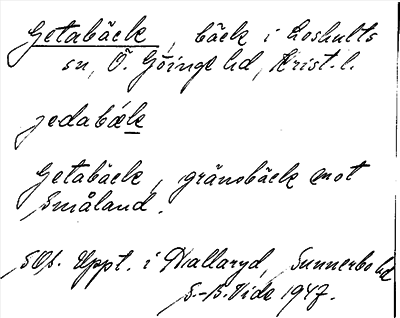 Getabäck, bäck i Loshults
sn, Ö. Göinge hd, Krist. l.
jedabæ̀k
Getabäck, gränsbäck mot
Småland.
SOf. Uppt. i Hallaryd, Sunnerbo hd
S.-B. Vide 1947.